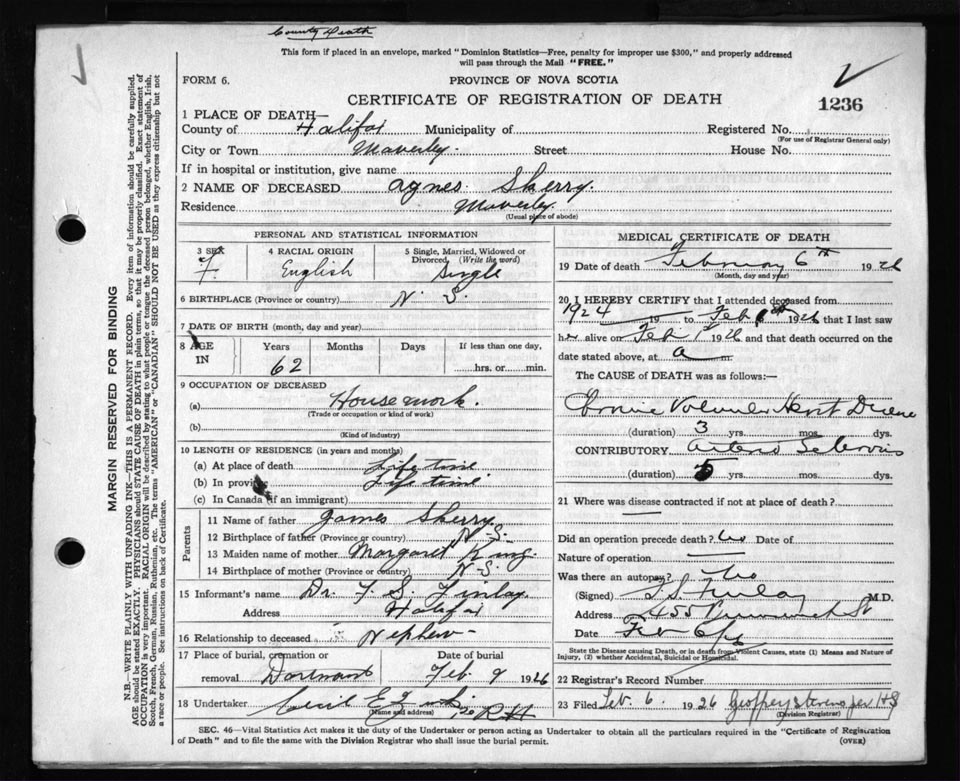 County Death
This form if placed in an envelope, marked "Dominion Statistics—Free, penalty for improper use $300," and properly addressed
will pass through the Mail "FREE."
FORM 6.
PROVINCE OF NOVA SCOTIA
CERTIFICATE OF REGISTRATION OF DEATH
1236
1 PLACE OF DEATH—
County of Halifax Municipality of Registered No.
(For use of Registrar General only)
City or Town Waverley. Street House No.
If in hospital or institution, give name
2 NAME OF DECEASED Agnes Skerry.
Residence Waverley.
(Usual place of abode)
PERSONAL AND STATISTICAL INFORMATION
3 SEX
F.
4 RACIAL ORIGIN
English
5 Single, Married, Widowed or
Divorced, (Write the word)
Single
6 BIRTHPLACE (Province or country) N. S.
7 DATE OF BIRTH (month, day and year)
8 AGE
IN
Years
62
Months
Days
If less than one day,
hrs. or min.
9 OCCUPATION OF DECEASED
(a) Housework.
(Trade or occupation or kind of work)
(b)
(Kind of industry)
10 LENGTH OF RESIDENCE (in years and months)
(a) At place of death Life time.
(b) In province Life time.
(c) In Canada (if an immigrant)
Parents
11 Name of father James Skerry
12 Birthplace of father (Province or country) N-S.
13 Maiden name of mother Margaret King.
14 Birthplace of mother (Province or country) N-S.
15 Informant's name Dr. F. S. Finlay
Address Halifax
16 Relationship to deceased Nephew
17 Place of burial, cremation or
removal Dartmouth
Date of burial
Feb. 9 1926
18 Undertaker Cecil E
(Name and address)
MEDICAL CERTIFICATE OF DEATH
19 Date of death February 6th 1926
(Month, day and year)
20 I HEREBY CERTIFY that I attended deceased from
1924 19 to Feb 1926 that I last saw
her alive on Feb 1st 1926 and that death occurred on the
date stated above, at a m.
The CAUSE OF DEATH was as follows:—
Chronic Valvular Heart Disease
(duration) 3 yrs. mos. dys.
CONTRIBUTORY Arterio Sclerosis
(duration) 5 yrs. mos. dys.
21 Where was disease contracted if not at place of death?
Did an operation precede death? No Date of
Nature of operation
Was there an autopsy? No
(Signed) F. S. Finlay M.D.
Address 455 St
Date Feb
State the Disease causing Death, or in death from Violent Causes, state (1) Means and Nature of
Injury, (2) whether Accidental, Suicidal or Homicidal.
22 Registrar's Record Number
23 Filed Feb. 6 1926 Geoffrey Stevens
(Division Registrar)
SEC. 46—Vital Statistics Act makes it the duty of the Undertaker or person acting as Undertaker to obtain all the particulars required in the "Certificate of Registration
of Death" and to file the same with the Division Registrar who shall issue the burial permit.
(OVER)
MARGIN RESERVED FOR BINDING
N.B.—WRITE PLAINLY WITH UNFADING INK—THIS IS A PERMANENT RECORD. Every item of information should be carefully supplied.
AGE should be stated EXACTLY. PHYSICIANS should STATE CAUSE OF DEATH in plain terms, so that it may be properly classified. Exact statement of
OCCUPATION is very important. RACIAL ORIGIN will be described by stating to what people or tongue the deceased person belonged, whether English, Irish,
Scotch, French, German, Russian, Ruthenian, etc. The terms "AMERICAN" or "CANADIAN" SHOULD NOT BE USED as they express citizenship but not
a race or people. See instructions on back of Certificate.